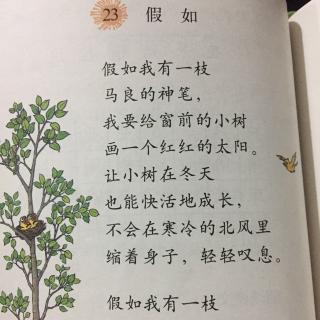 23 假如
假如我有一枝
马良的神笔，
我要给窗前的小树
画一个红红的太阳。
让小树在冬天
也能快活地成长，
不会在寒冷的北风里
缩着身子，轻轻叹息。
假如我有一枝